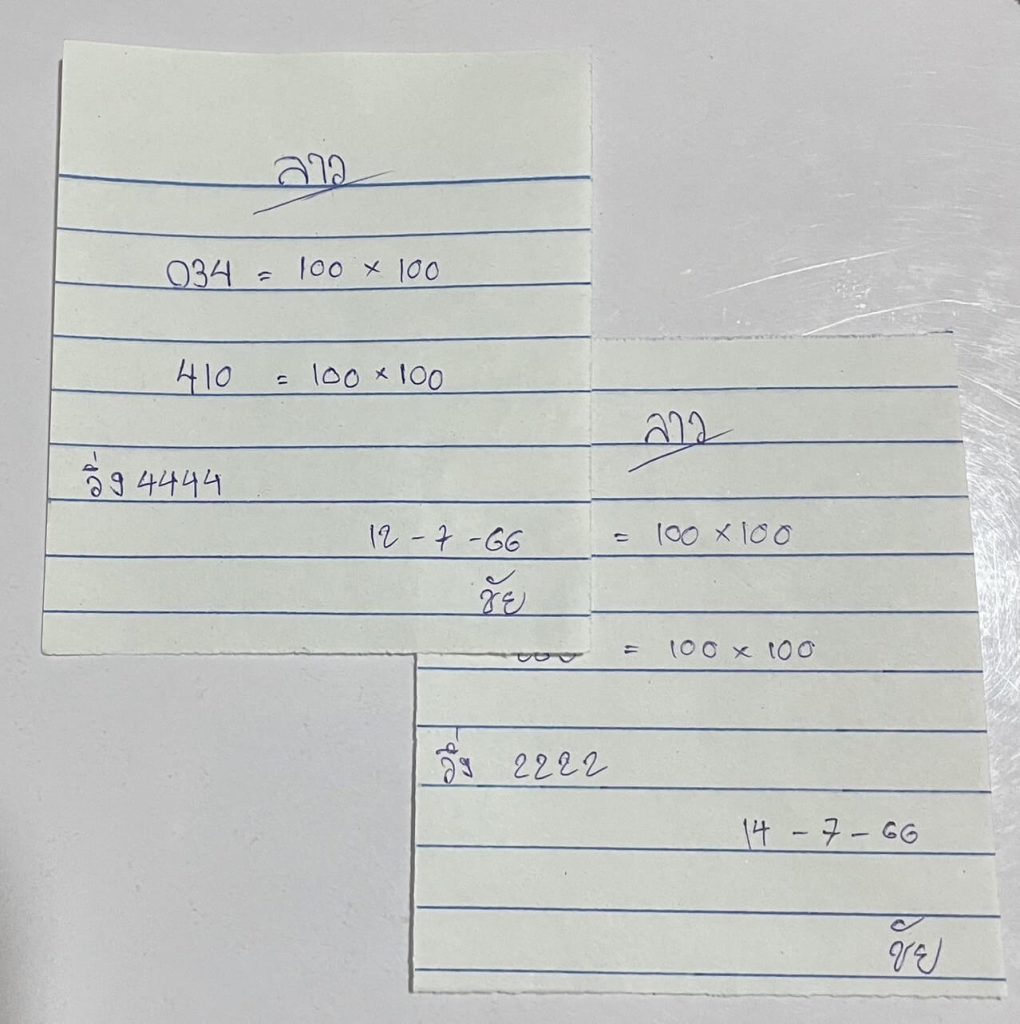 ลาว
034 = 100 × 100
410 = 100 × 100
วิ่ง 4444
12 - 7 - 66
ชัย
ลาว
= 100 × 100
= 100 × 100
วิ่ง 2222
14 - 7 - 66
ชัย